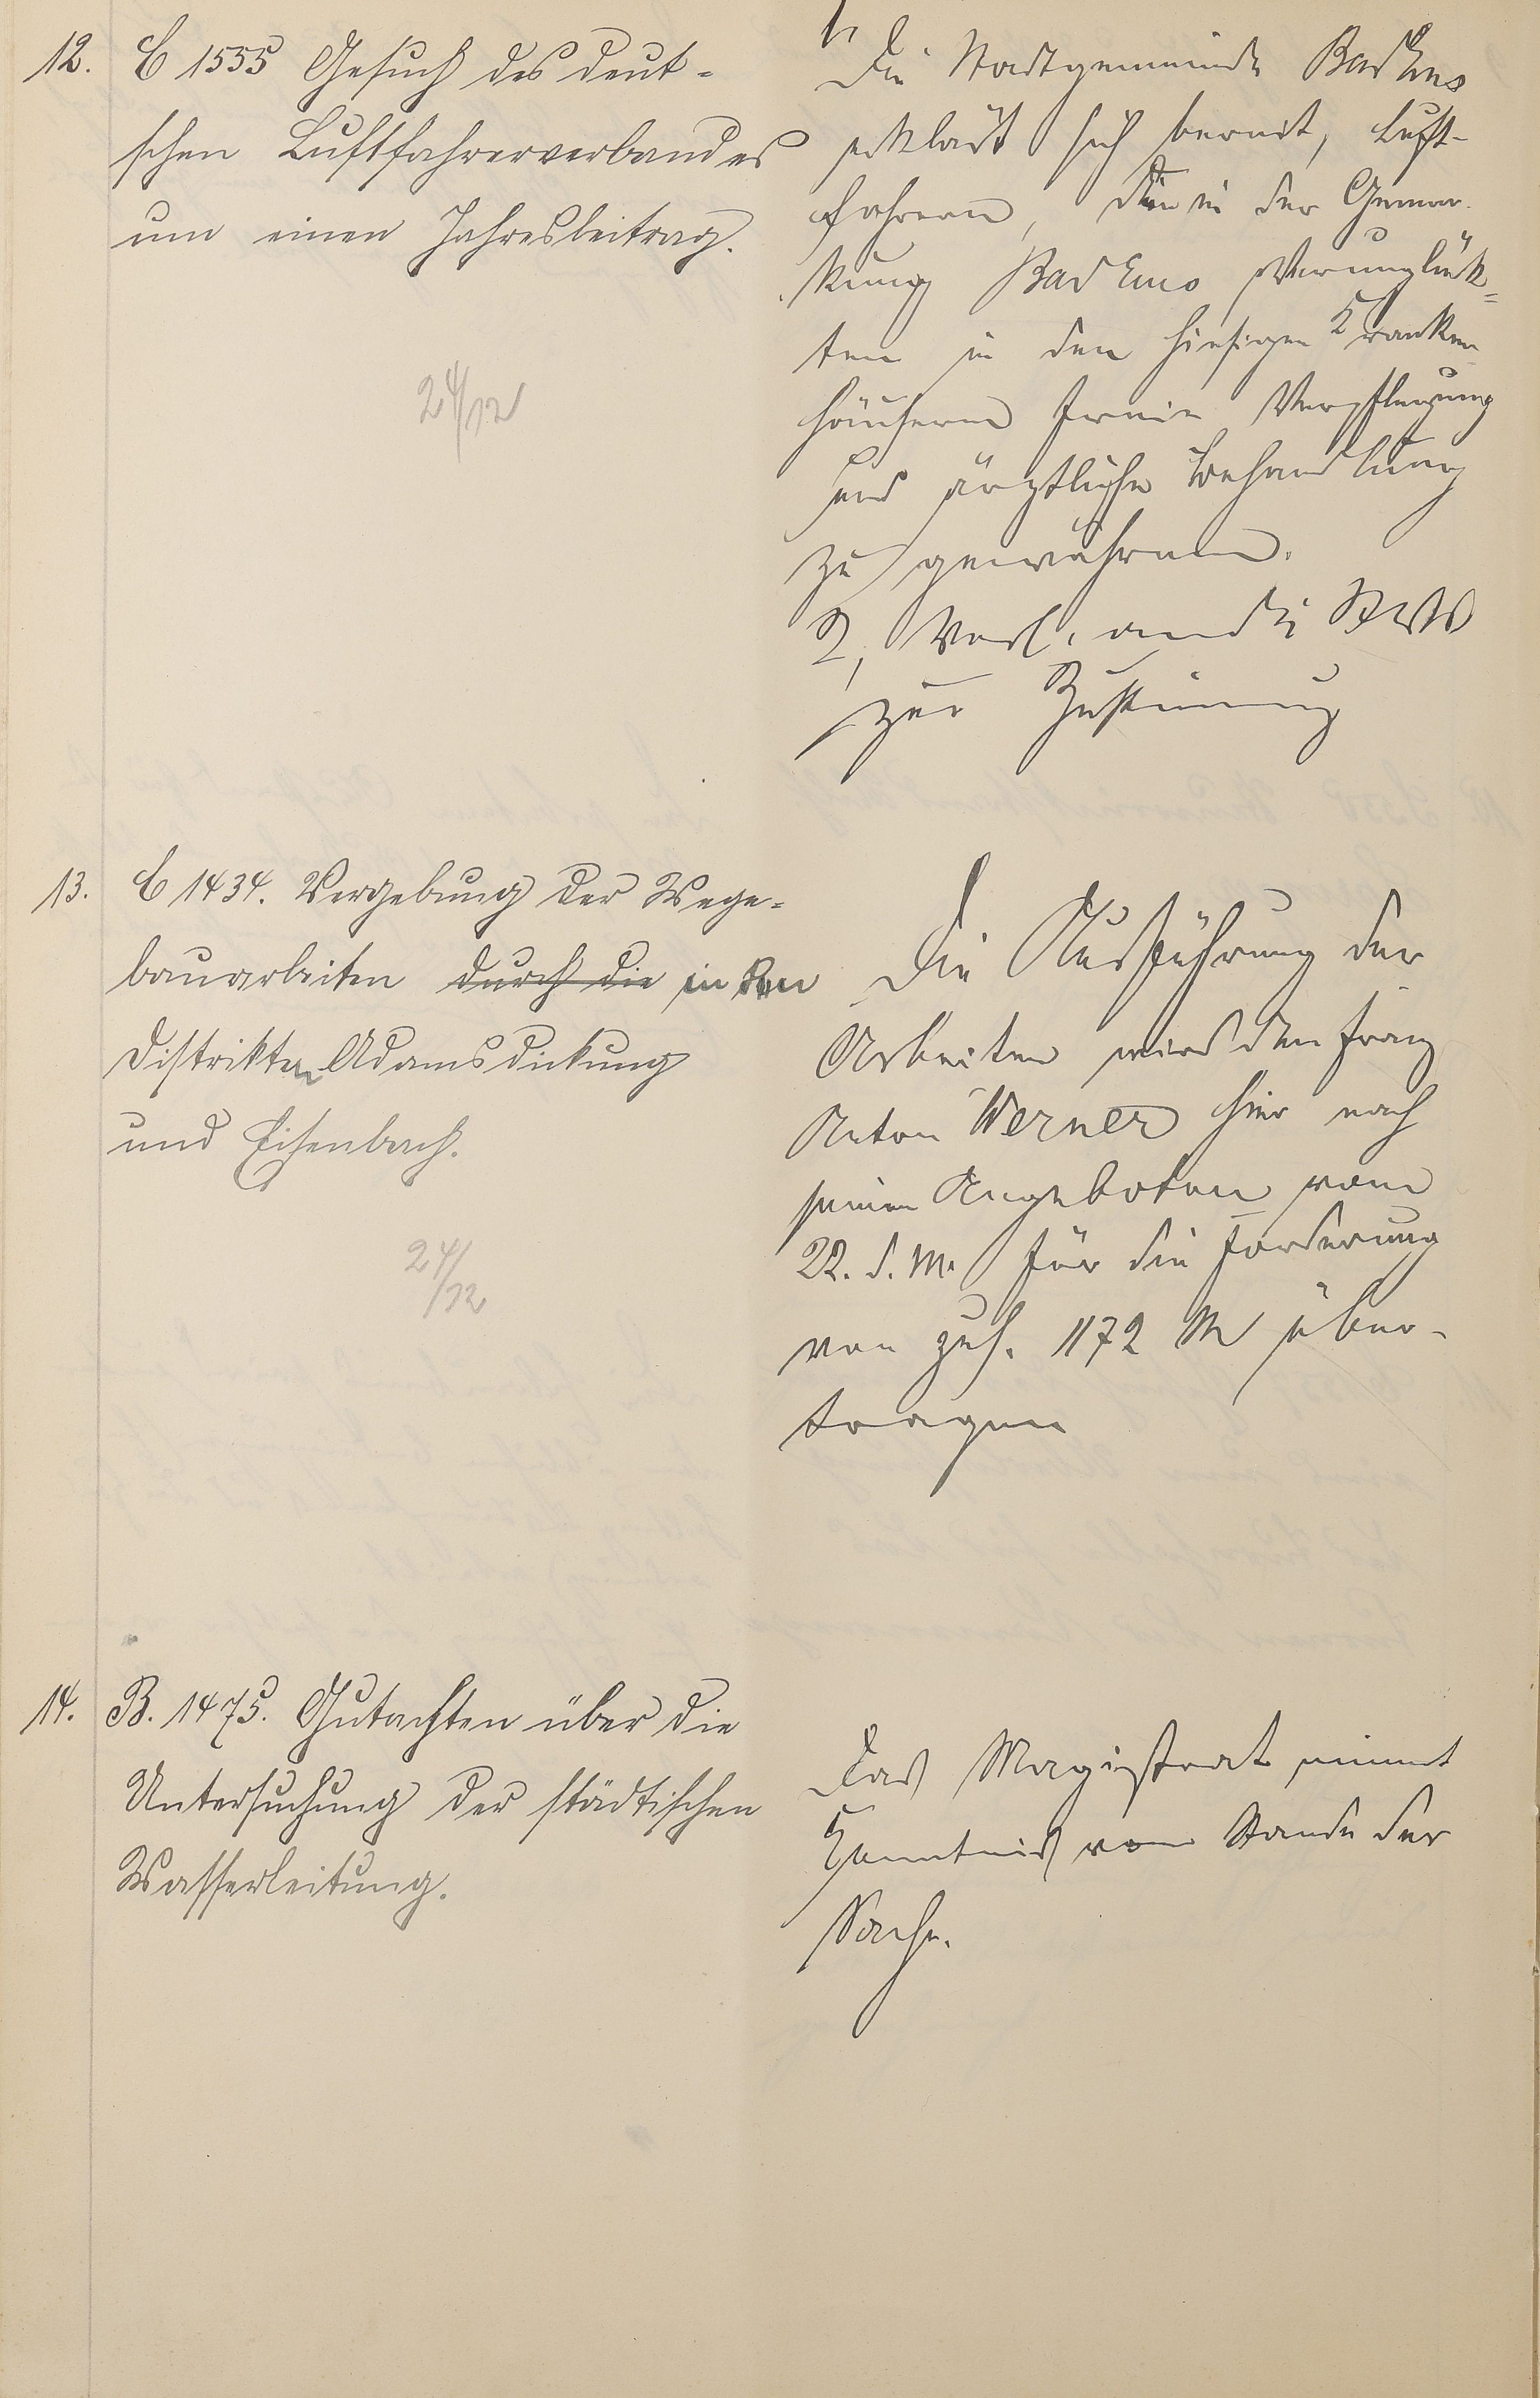 12. C 1555 Gesuch des deut-
schen Luftfahrerverbandes
um einen Jahresbeitrag.
24/12
1,
Die Stadtgemeinde Bad Ems
erklärt sich bereit, Luft-
fahrern, die in der Gemar-
kung Bad Ems verunglück-
ten in den hiesigen Kranken-
häusern freie Verpflegung
und ärztliche Behandlung
zu gewähren.
2, Vorl. an die StVV
zur Zustimmung
13. C 1434. Vergebung der Wege-
bauarbeiten durch die in den
Distrikten Adamsdickung
und Eisenbach.
24/12
Die Ausführung der
Arbeiten wird dem Franz
Anton Werner hier nach
seinen Angeboten vom
22. d. M. für die Forderung
von zus. 1172 M über-
tragen
14. B. 1475. Gutachten über die
Untersuchung der städtischen
Wasserleitung.
Das Magistrat nimmt
Kenntnis vom Stande der
Sache.